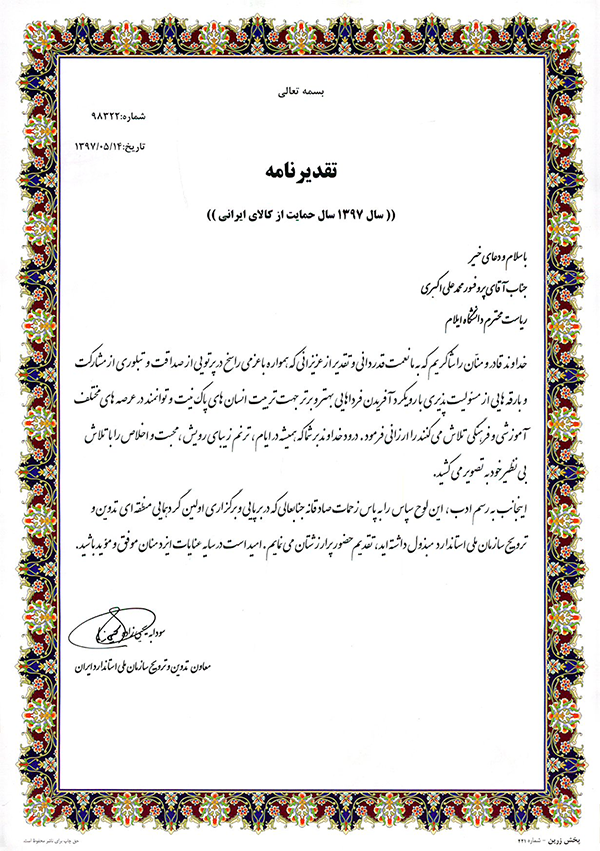 بسمه تعالی
شماره:۹۸۳۲۲
تاریخ:۱۳۹۷/۰۵/۱۴
تقدیرنامه
(( سال ۱۳۹۷ سال حمایت از کالای ایرانی ))
با سلام و دعای خیر
جناب آقای پروفسور محمد علی اکبری
ریاست محترم دانشگاه ایلام
خداوند قادر و منان را شاکریم که به ما نعمت قدردانی و تقدیر از عزیزانی که همواره با عزمی راسخ در پرتویی از صداقت و تبلوری از مشارکت
و بارقه هایی از مسئولیت پذیری با رویکرد آفریدن فردهایی بهتر و برتر جهت تربیت انسان های پاک نیت و توانمند در عرصه های مختلف
آموزشی و فرهنگی تلاش می کنند را ارزانی فرمود. درود خداوند بر شما که همیشه در ایام، ترنم زیبای رویش، محبت و اخلاص را با تلاش
بی نظیر خود به تصویر می کشید.
اینجانب به رسم ادب، این لوح سپاس را به پاس زحمات صادقانه جنابعالی که در برپایی و برگزاری اولین گردهمایی منطقه ای تدوین و
ترویج سازمان ملی استاندارد مبذول داشته اید، تقدیم حضور پرارزشتان می نمایم. امید است در سایه عنایات ایزد منان موفق و مؤید باشید.
سودابه یحیی زاده
معاون تدوین و ترویج سازمان ملی استاندارد ایران
پخش زرین - شماره ۲۲۱
حق چاپ برای ناشر محفوظ است